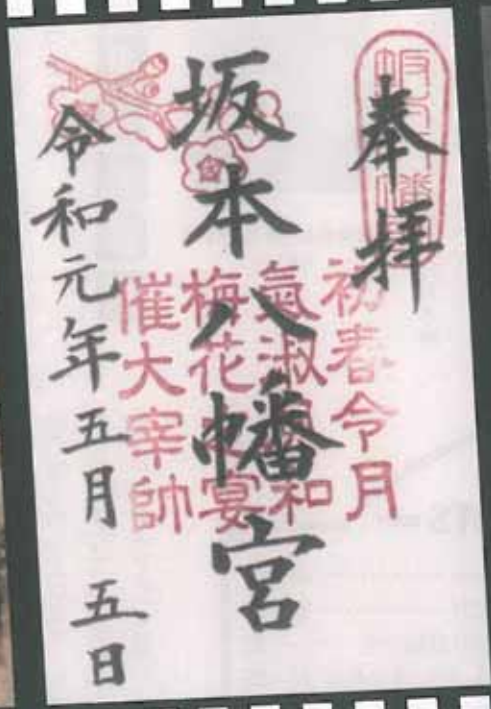 奉拝
初春令月
氣淑風和
梅花之宴
催大宰帥
坂本八幡宮
令和元年五月 五日